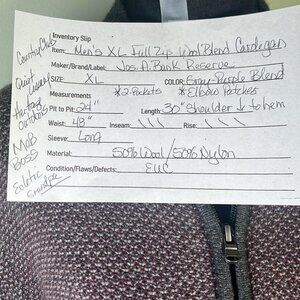 Inventory Slip
Item: Men's XL Full Zip Wool Blend Cardigan
Maker/Brand/Label: Jos. A. Bank Reserve
SIZE XL COLOR: Gray Purple Blend
Measurements *2 Pockets *Elbow Patches
Pit to Pit: 24" Length: 30" Shoulder ↓ to hem
Waist: 48" Inseam: \ \ \ Rise: \ \ \
Sleeve: Long
Material: 50% Wool / 50% Nylon
Condition/Flaws/Defects:
EUC
Country Club
Quiet Luxury
Hunting
Outdoors
MOB
BOSS
Eclectic
Grandpa